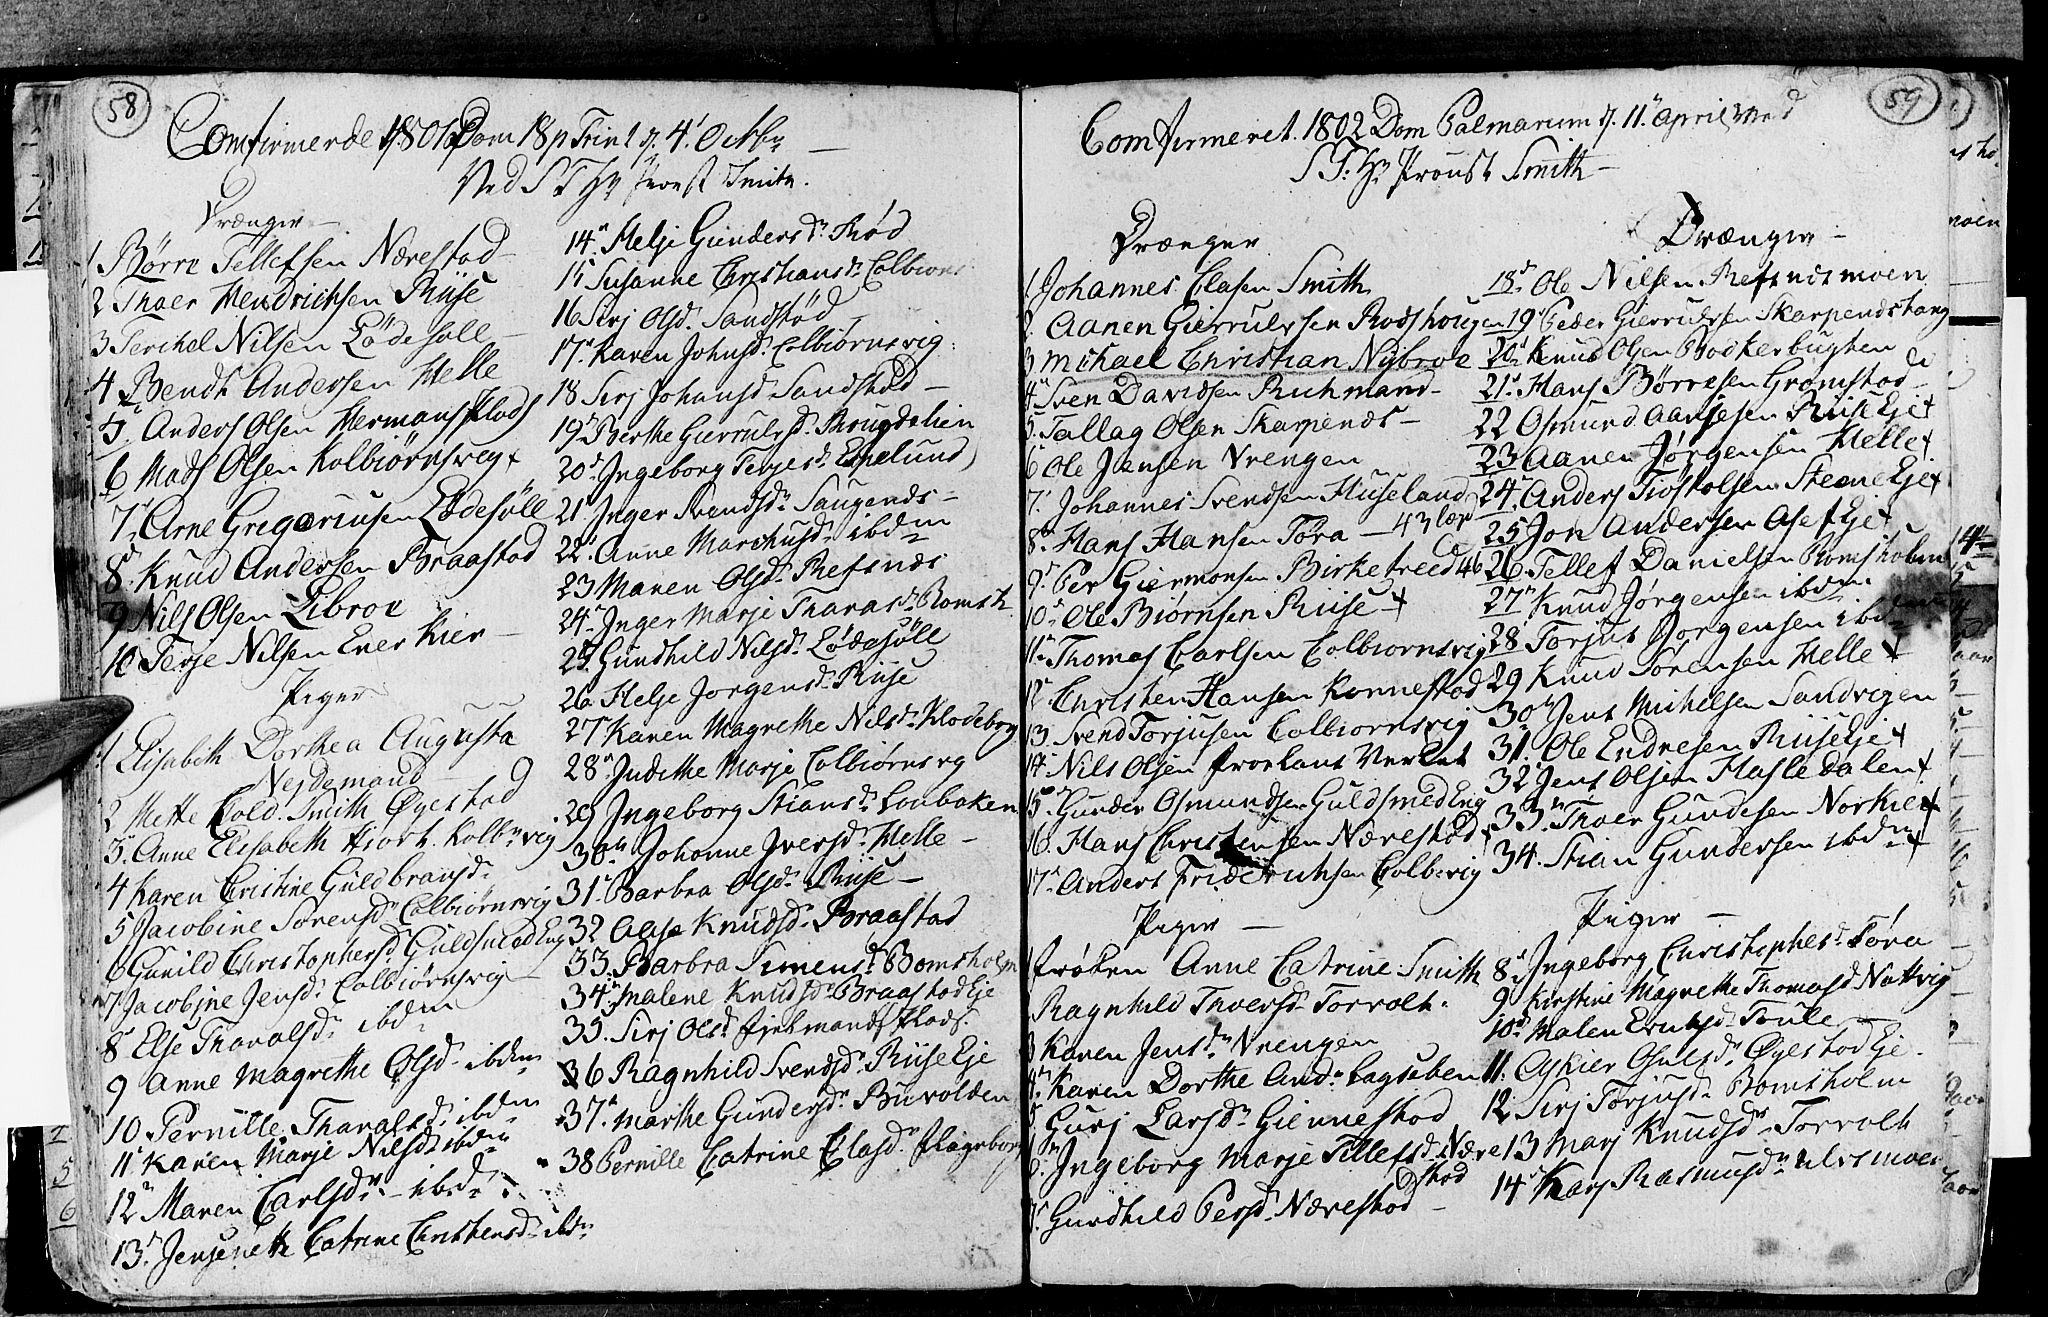 58
Comfirmerde 1801 Dom 18 p Trin: d. 4' Octbr
Ved S T Hr Provst Smith.
Drænger
1 Börre Tellefsen Nærestad
2 Thoer Hendrichsen Riise
3 Terchel Nilsen Lödesöle
4 Bendt Andersen Helle
5. Anders Olsen Hermans Plads
6 Mads Olsen Kolbiørnsvig
7 Arne Gregoriusen Lödesölle
8 Knud Andersen Braastad
9 Nils Olsen Libroe
10 Terje Nilsen Enerkier
Piger
1 Elisabeth Dorthea Augusta
Neidemand
2 Mette Cold. Smith Øyestad
3. Anne Elisabeth Hiort. Kolb:vig
4 Karen Cristine Guldbransd:
5 Jacobine Sørensd: Colbiørnsvig
6 Gunild Christophersd: Guldsmed Eng
7 Jacobine Jensd: Colbiørnsvig
8 Else Tharalsd: ibdm
9 Anne Magrethe Olsd: ibdm
10 Pernille Tharalsd: ibdm
11 Karen Marje Nilsd: ibdm
12 Maren Carlsd: ibd:
13. Jensine Catrine Christensd: ibdm
14 Helje Gundersd: Rød
15 Susanne Christiansd: Colbiorns
16 Sirj Olsd. Sandstød
17 Karen Johnsd: Colbiørnsvig
18 Sirj Johansd: Sandstød
19 Berthe Gierrulvsd: Skrugdalien
20 Ingeborg Terjesd: Espelund
21 Inger Svendsd: Saugends
22 Anne Marchusd: ibdm
23 Maren Olsd: Refsnes
24 Inger Marje Tharasd: Bomsh
25 Gundhild Nilsd: Lödesölle
26 Helje Jorgensd: Riise
27 Karen Magrethe Nilsd: Klodeborg
28 Judithe Marje Colbiørnsvg
29 Ingeborg Stiansd: Loubaken
30 Johonne Iversd: Helle
31 Barbra Olsd: Riise
32 Aase Knudsd: Braastad
33. Barbra Simensd: Bomsholm
34. Malene Knudsd: Braastad Eje
35. Sirj Olsd: Plads.
36 Ragnhild Svendsd: Riise Eje
37 Marthe Gundersd: Buvolden
38 Pernille Catrine Clasd: Flageborg
59
Comfirmeret. 1802 Dom Palmarum d. 11 April Ved
S T. Hr Provst Smith
Drænger
1 Johannes Clasen Smith
2. Aanen Gierrulvsen Rodshougen
3 Michael Christian Nyibroe
4 Sven Davidsen Richmand
5. Tallag Olsen Skarpends
6 Ole Jensen Vrengen
7. Johannes Svendsen Huseland
8. Hans Hansen Töra — 43 lex
9. Per Giermonsen Birketreed 46
10. Ole Biørnsen Riise +
11. Thomas Carlsen Colbiornsvig
12. Christen Hansen Konnestad
13. Svend Torjusen Colbiornsvig
14. Nils Olsen Froelans Verket
15. Gunder Osmundsen Guldsmed Eng
16. Hans Christensen Nærestad
17. Anders Friderichsen Colb:vig
Drænger
18. Ole Nilsen Refsnesmoen
19. Peder Gierrulvsen Skarpendstang
20. Knud Olsen Bockerbugten
21. Hans Börresen Gromstad
22 Osmund Aanjesen Riise Eje +
23 Aanen Jørgensen Helle +
24. Anders Tiøstolsen Steene Eje +
25 Jon Andersen Ase Eje +
26 Tellef Danielsen Bomsholm
27. Knud Jørgensen ibdm
28 Torjus Jorgensen ibdm
29 Knud Sörensen Helle +
30 Jens Michelsen Sandvigen
31. Ole Endresen Riise Eje +
32 Jens Olsen Hasledalen +
33. Thoer Gundersen Norkier +
34. Stian Gundersen ibdm +
Piger
1 Frøken Anne Catrine Smith
Ragnhild Thoersd: Torvolt.
3 Karen Jensd: Vrengen
4. Karen Dorthe And: Lagseben
5. Gurj Larsd: Giennestad
6. Ingeborg Marje Tellefsd: Nære
stad
7. Gundhild Persd: Nærestad
Piger
8 Ingeborg Christophersd: Töra
9 Kirstine Magrethe Thomasd: Natvig
10 Malen Toule
11. Askier Osulsd: Øyestad Eje.
12 Sirj Torjusd: Bomsholm
13 Marj Knudsd: Torvolt
14 Karj Rasmusd: